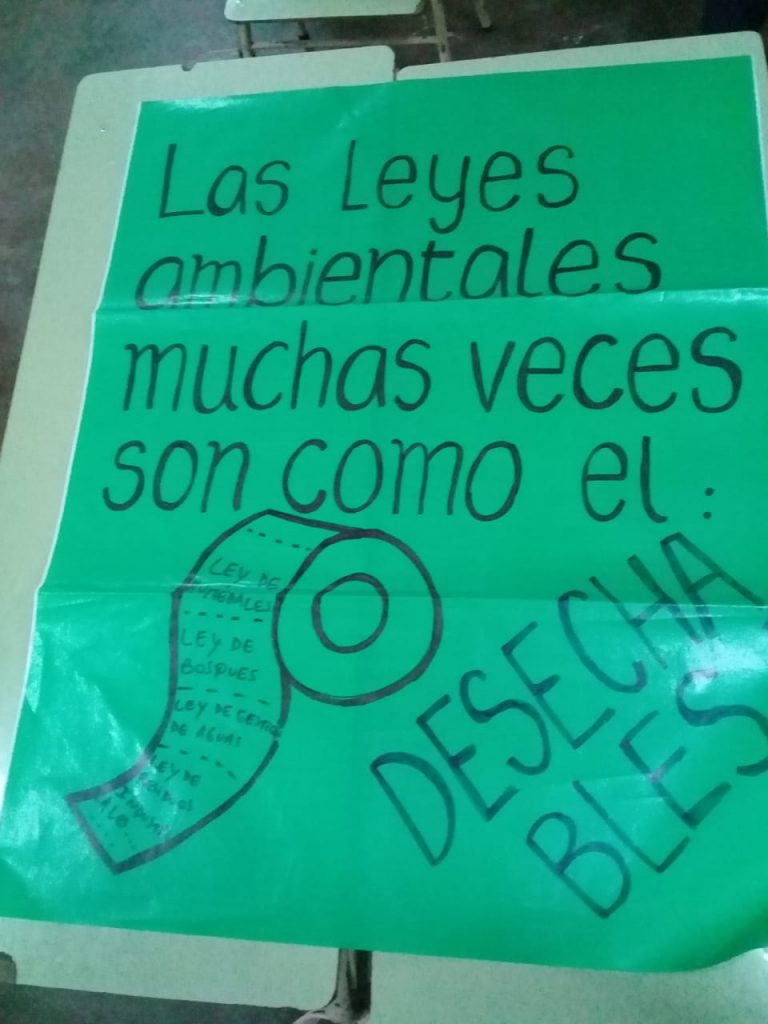 Las Leyes
ambientales
muchas veces
son como el :
LEY DE
HUMEDALES
LEY DE
BOSQUES
LEY DE GESTION
DE AGUAS
LEY DE
DESECHA
BLES